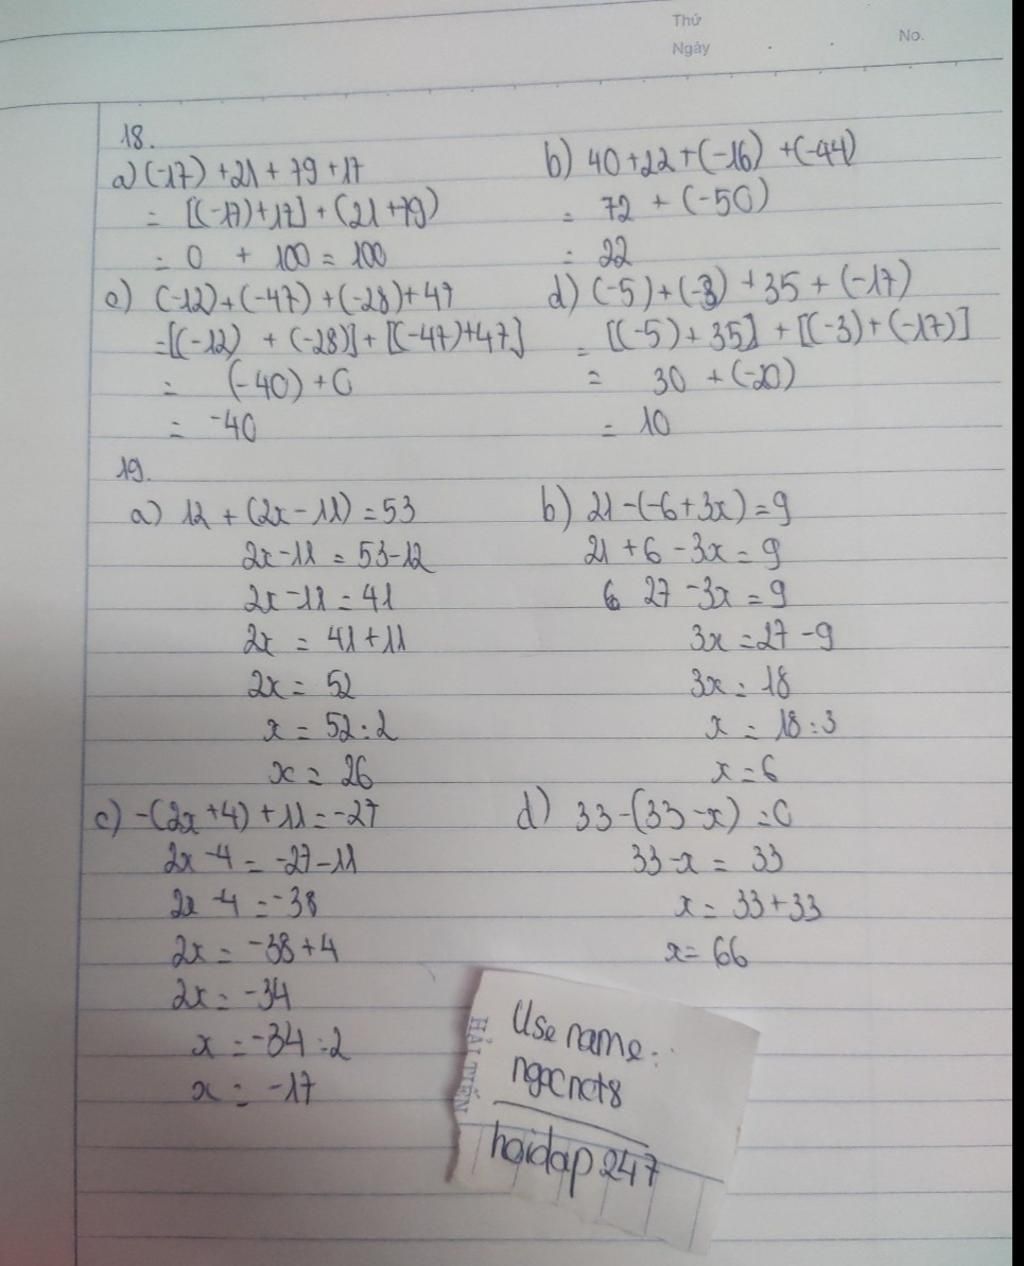 Thứ
Ngày
No.
18.
a) (-17) + 21 + 79 + 17
= [(-17)+17] + (21+79)
= 0 + 100 = 100
b) 40+22+(-16) +(-44)
= 72 + (-50)
= 22
c) (-12)+(-47) +(-28)+47
=[(-12) + (-28)] + [(-47)+47]
= (-40) + 0
= -40
d) (-5)+(-3) + 35 + (-17)
= [(-5) + 35] + [(-3) + (-17)]
= 30 + (-20)
= 10
19.
a) 12 + (2x - 11) = 53
2x - 11 = 53-12
2x - 11 = 41
2x = 41 + 11
2x = 52
x = 52 : 2
x = 26
b) 21 - (-6 + 3x) = 9
21 + 6 - 3x = 9
27 - 3x = 9
3x = 27 - 9
3x = 18
x = 18 : 3
x = 6
c) -(2x + 4) + 11 = -27
2x - 4 = -27 - 11
2x - 4 = -38
2x = -38 + 4
2x = -34
x = -34 : 2
x = -17
d) 33 - (33 - x) = 0
33 - x = 33
x = 33 + 33
x = 66
HẢI TIẾN
Use name:
ngocnct8
hoidap247